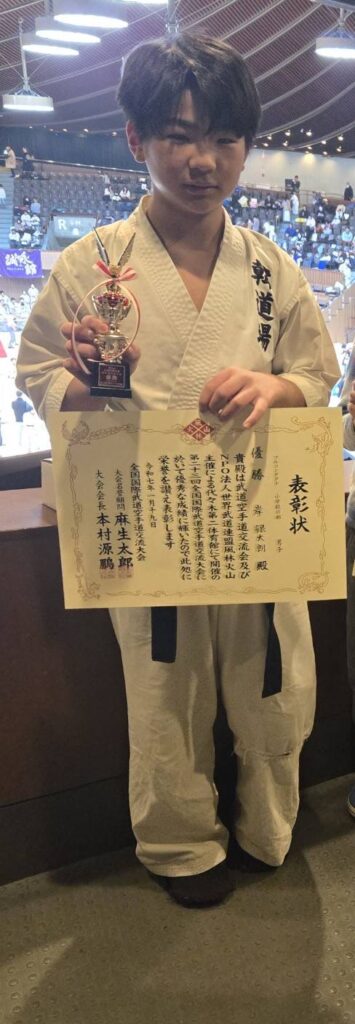 表彰状
小学六年 男子
優勝
殿
貴殿は武道空手道交流会及び
NPO法人世界武道連盟風林火山
主催による代々木第二体育館にて開催の
第二十三回全国国際武道空手道交流大会に
於いて優秀な成績に輝いたので此処に
栄誉を讃え表彰します
令和七年一月十九日
全国国際武道空手道交流大会
大会名誉顧問 麻生太郎
大会会長 本村源鵬
道場
優勝
R